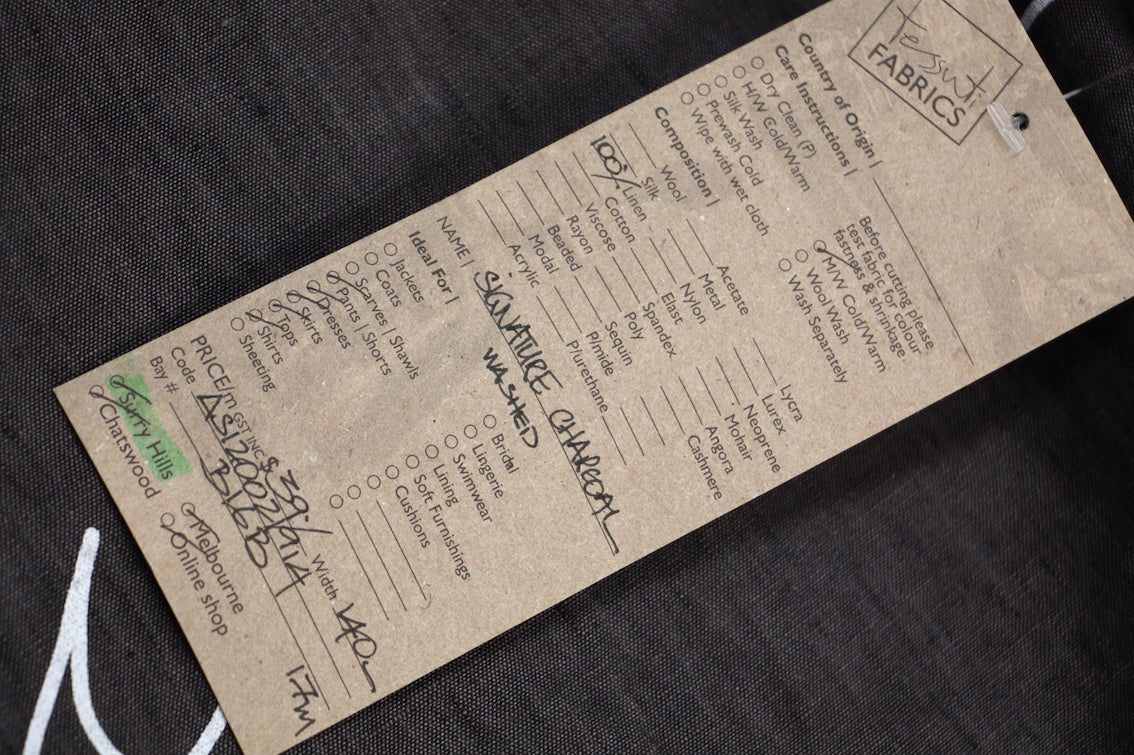 tessuti
FABRICS
Country of Origin |
Care Instructions |
Dry Clean (P)
H/W Cold/Warm
Silk Wash
Prewash Cold
Wipe with wet cloth
Before cutting please
test fabric for colour
fastness & shrinkage
M/W Cold/Warm
Wool Wash
Wash Separately
Composition |
Wool
Silk
100% Linen
Cotton
Viscose
Rayon
Beaded
Modal
Acrylic
Acetate
Metal
Nylon
Elast
Spandex
Poly
Sequin
P/mide
P/urethane
Lycra
Lurex
Neoprene
Mohair
Angora
Cashmere
NAME | SIGNATURE CHARCOAL
WASHED
Ideal For |
Jackets
Coats
Scarves | Shawls
Pants | Shorts
Dresses
Skirts
Tops
Shirts
Sheeting
Bridal
Lingerie
Swimwear
Lining
Soft Furnishings
Cushions
PRICE/m GST INC $39/ Width 140
Code
Bay # 17m
Surry Hills
Chatswood
Melbourne
Online shop